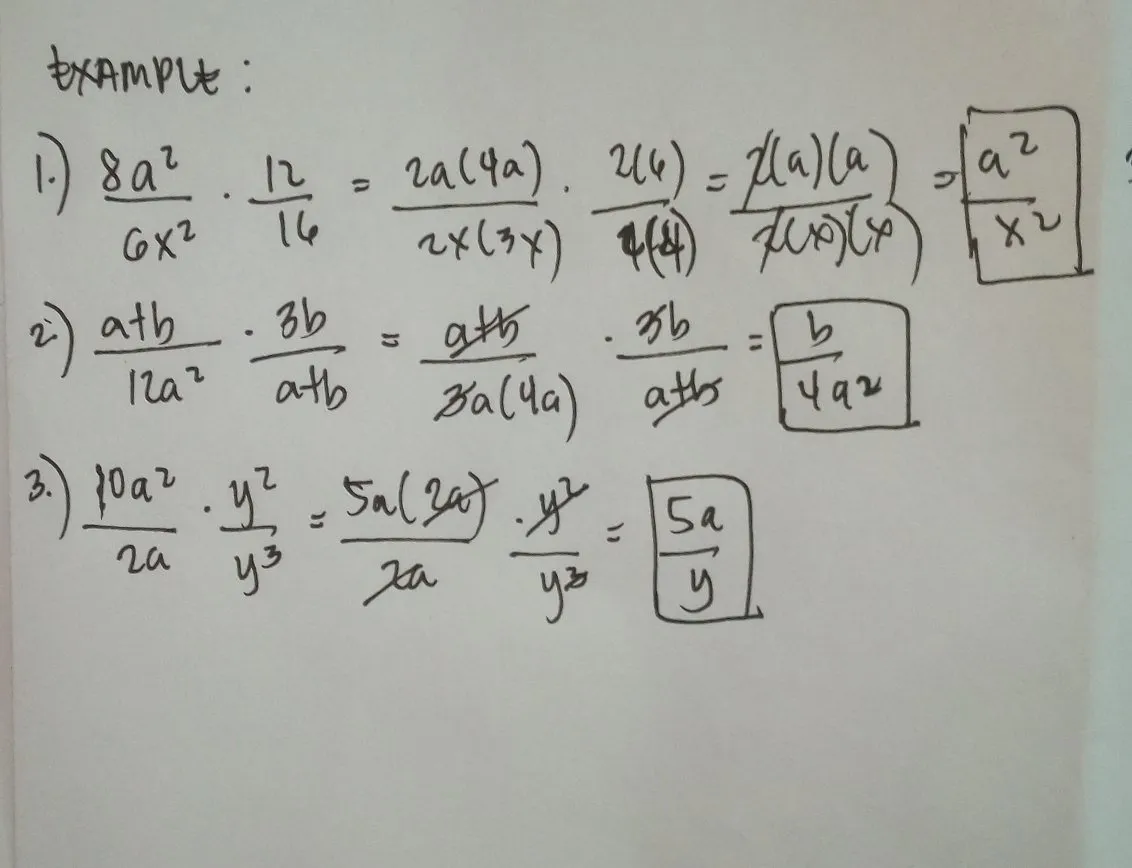 EXAMPLE:
1.) 8a²/6x² · 12/16 = 2a(4a)/2x(3x) · 2(6)/4(4) = 2(a)(a)/2(x)(x) = a²/x²
2.) a+b/12a² · 3b/a+b = a+b/3a(4a) · 3b/a+b = b/4a²
3.) 10a²/2a · y²/y³ = 5a(2a)/2a · y²/y³ = 5a/y